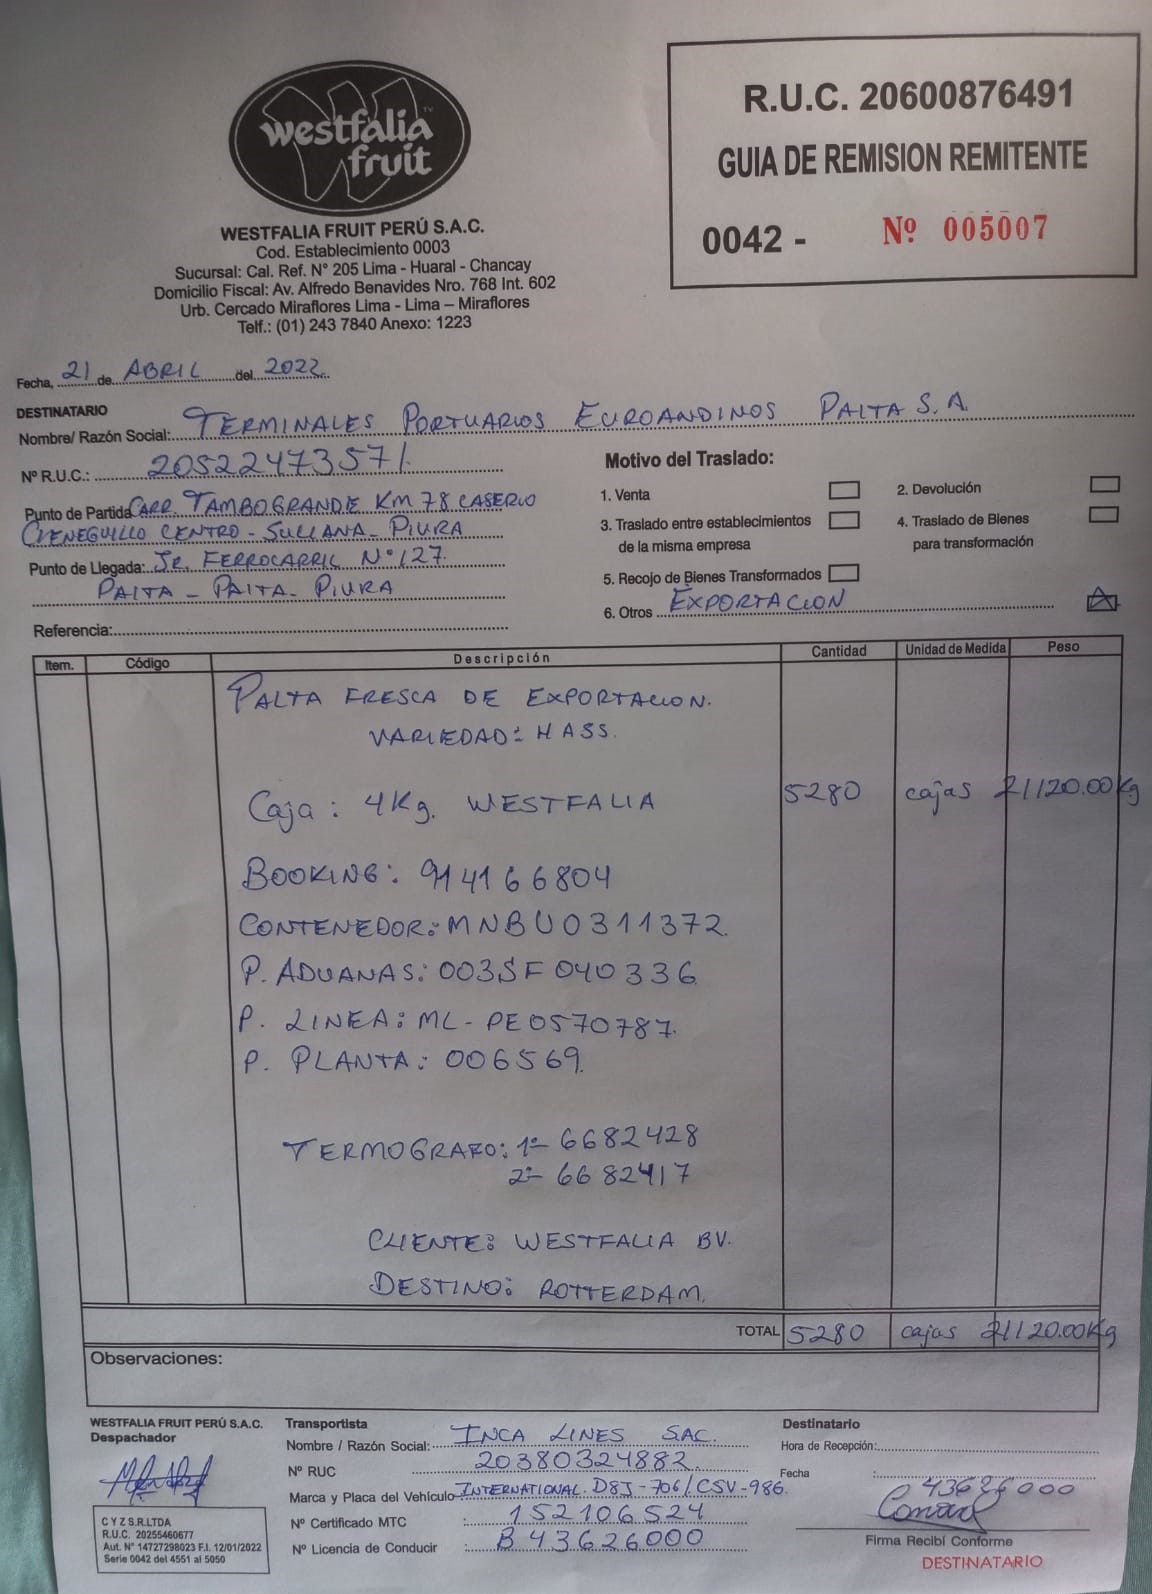 westfalia
fruit
R.U.C. 20600876491
GUIA DE REMISION REMITENTE
0042 - Nº 005007
WESTFALIA FRUIT PERÚ S.A.C.
Cod. Establecimiento 0003
Sucursal: Cal. Ref. N° 205 Lima - Huaral - Chancay
Domicilio Fiscal: Av. Alfredo Benavides Nro. 768 Int. 602
Urb. Cercado Miraflores Lima - Lima – Miraflores
Telf.: (01) 243 7840 Anexo: 1223
Fecha, 21 de ABRIL del 2022
DESTINATARIO
Nombre/ Razón Social: TERMINALES PORTUARIOS EUROANDINOS PAITA S.A.
Nº R.U.C.: 20522473571
Punto de Partida CARR. TAMBOGRANDE KM 78 CASERIO
CIENEGUILLO CENTRO - SULLANA - PIURA
Punto de Llegada: JR. FERROCARRIL N° 127.
PAITA - PAITA - PIURA
Referencia:
Motivo del Traslado:
1. Venta
2. Devolución
3. Traslado entre establecimientos
de la misma empresa
4. Traslado de Bienes
para transformación
5. Recojo de Bienes Transformados
6. Otros EXPORTACION
Item. Código Descripción Cantidad Unidad de Medida Peso
PALTA FRESCA DE EXPORTACION.
VARIEDAD: HASS.
Caja: 4Kg. WESTFALIA 5280 cajas 21120.00Kg
BOOKING: 914166804
CONTENEDOR: MNBU0311372.
P. ADUANAS: 003SF040336
P. LINEA: ML-PE0570787.
P. PLANTA: 006569.
TERMOGRAFO: 1- 6682428
2- 6682417
CLIENTE: WESTFALIA BV.
DESTINO: ROTTERDAM.
TOTAL 5280 cajas 21120.00Kg
Observaciones:
WESTFALIA FRUIT PERÚ S.A.C.
Despachador
C Y Z S.R.LTDA
R.U.C. 20255460677
Aut. N° 14727298023 F.I. 12/01/2022
Serie 0042 del 4551 al 5050
Transportista
Nombre / Razón Social: INCA LINES SAC.
Nº RUC 20380324882
Marca y Placa del Vehículo INTERNATIONAL. D8J-706/CSV-986.
Nº Certificado MTC : 152106524
Nº Licencia de Conducir : B 43626000
Destinatario
Hora de Recepción:
Fecha :
43626000
Firma Recibí Conforme
DESTINATARIO